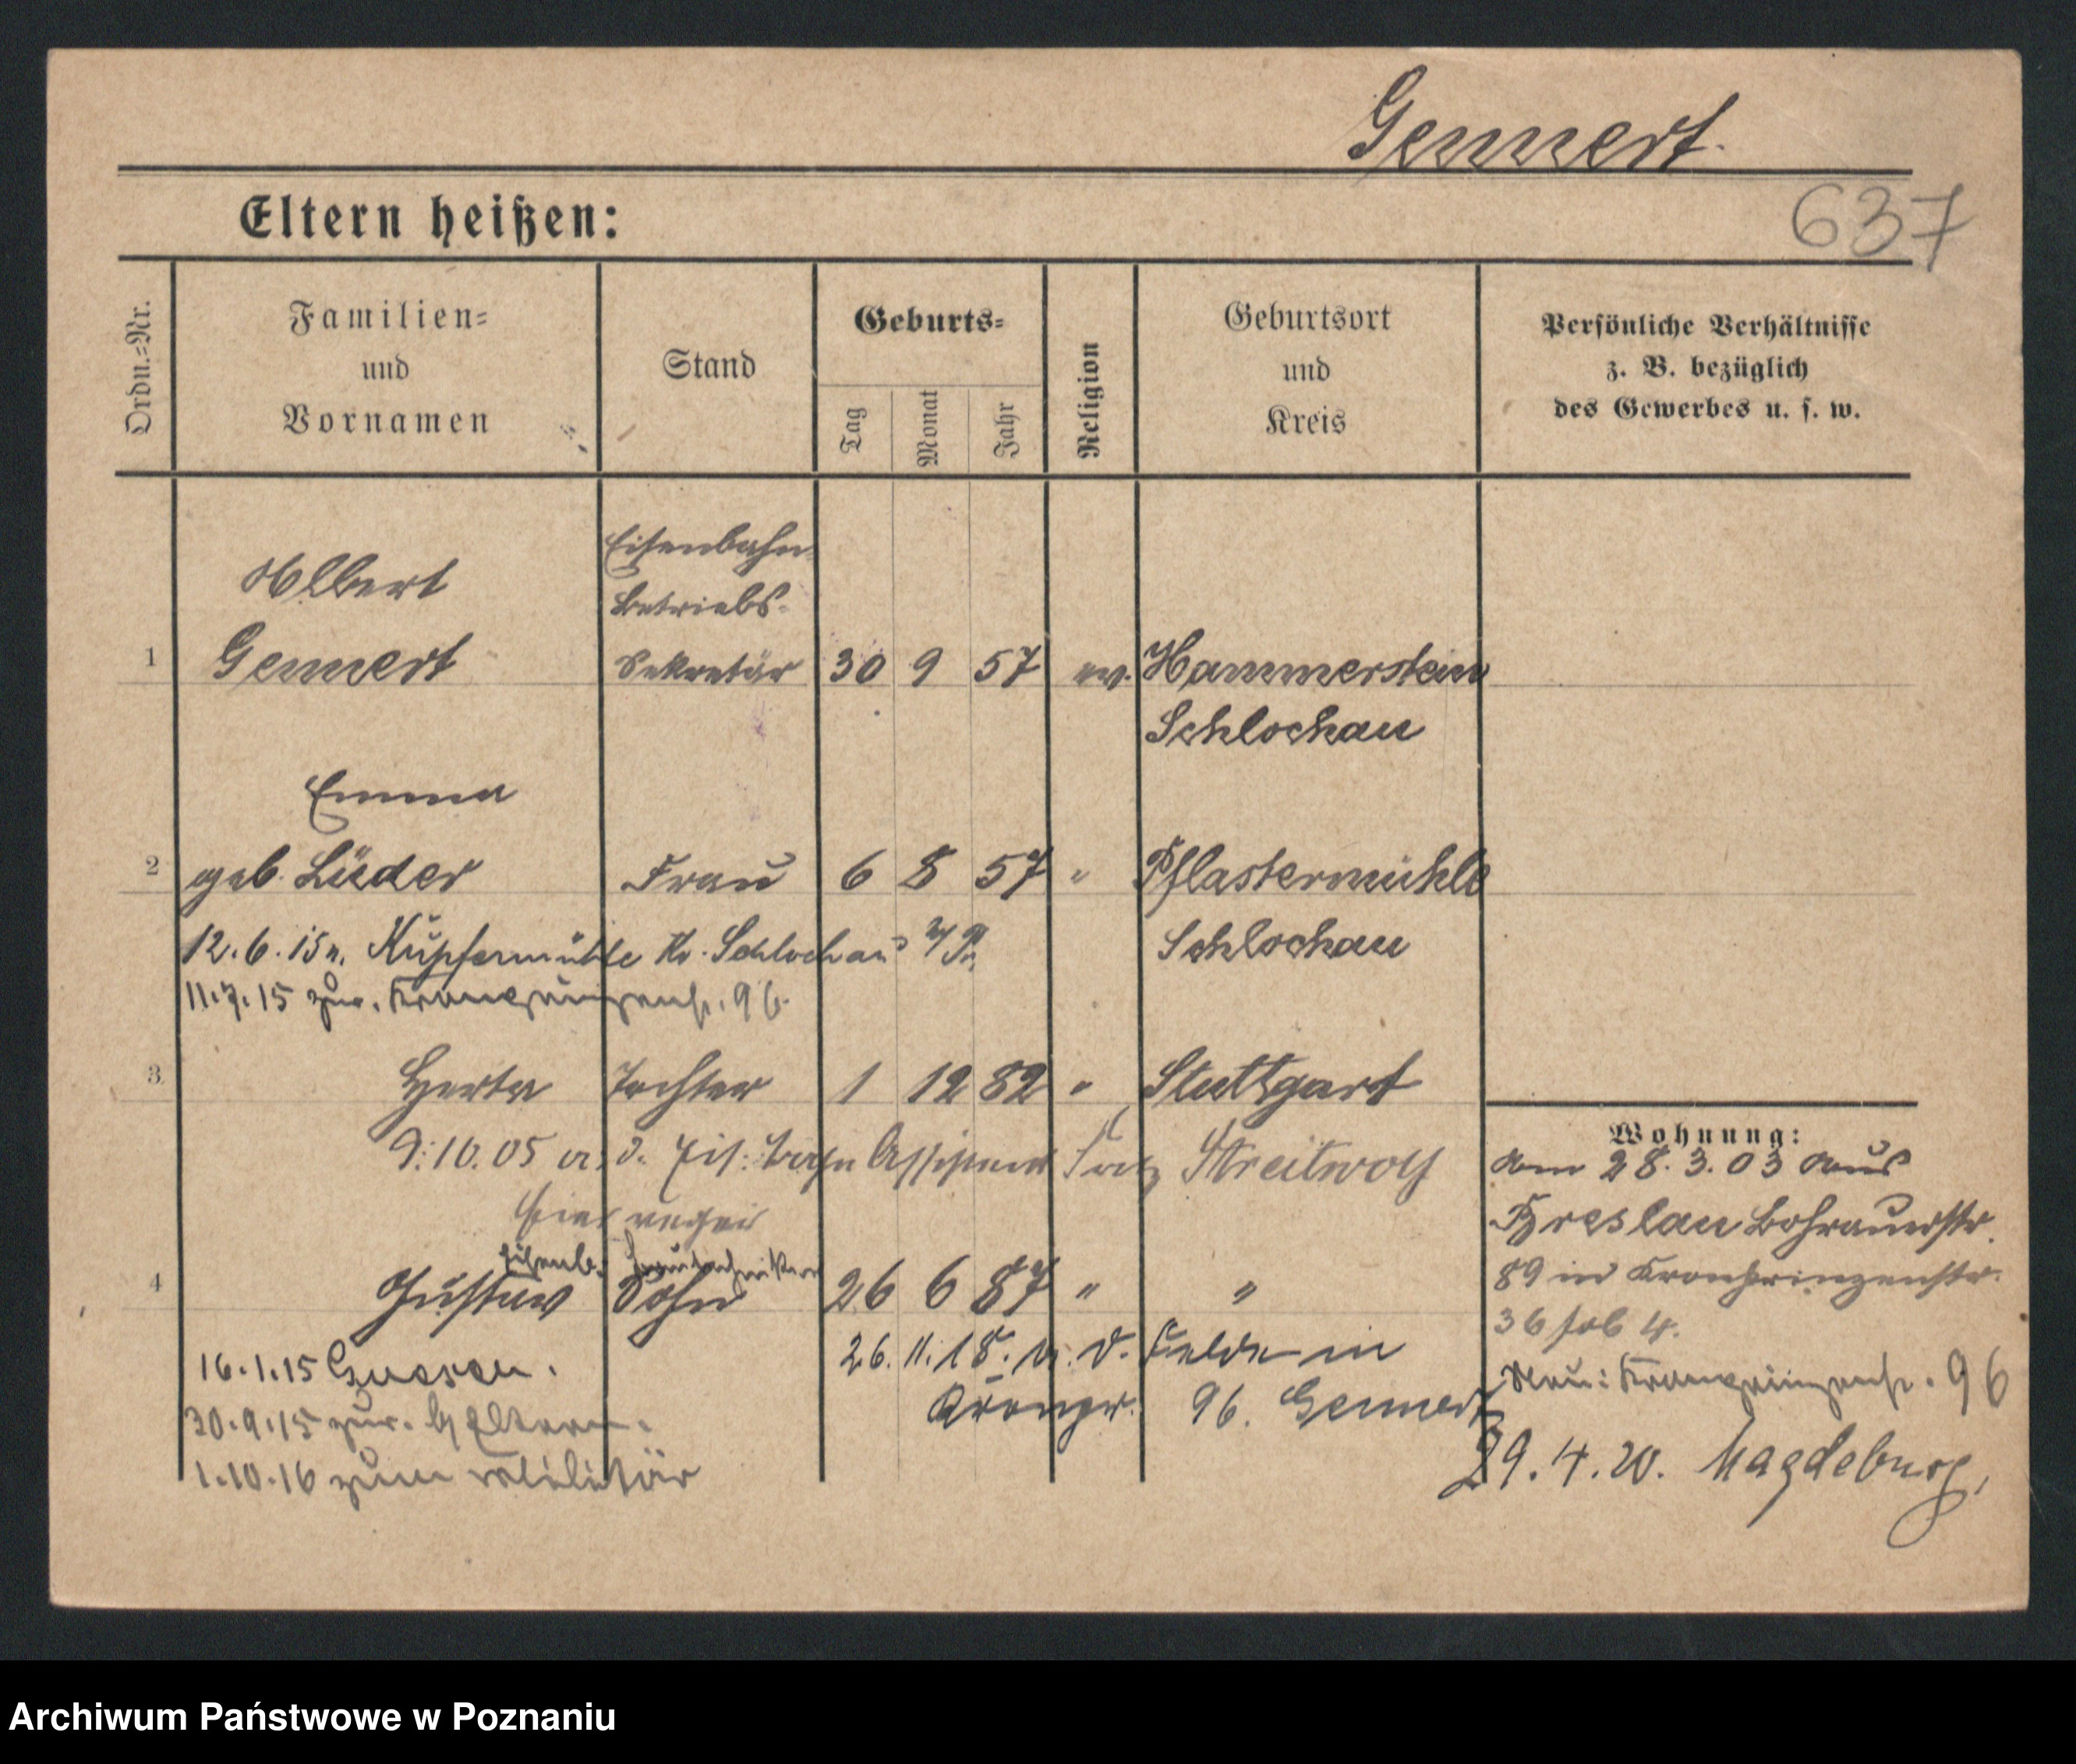 Gennert.
637
Eltern heißen:
Ordn.=Nr.
Familien=
und
Vornamen
Stand
Geburts=
Tag
Monat
Jahr
Religion
Geburtsort
und
Kreis
Persönliche Verhältnisse
z. B. bezüglich
des Gewerbes u. s. w.
Albert
Gennert
Eisenbahn-
Betriebs-
Sekretär
1
30 9 57 ev. Hammerstein
Schlochau
Emma
2 geb. Lüder Frau 6 8 57 " Pflastermühle
Schlochau
12.6.15 n. Kupfermühle Kr. Schlochau
11.7.15 zur. Kronprinzenstr. 96.
3 Herta Tochter 1 12 82 " Stuttgart
9.10.05 Assistent Streitwolf
hier
4 Gustav Sohn 26 6 87 " "
16.1.15 Gnesen.
30.9.15 zur. Eltern.
1.10.16 zum Militär
26.11.18. v. d. Felde in
Kronpr. 96. Gennert
Wohnung:
am 28.3.03 aus
Breslau Bohrauerstr.
89 in Kronprinzenstr.
36
Neu: Kronprinzenstr. 96
29.4.20. Magdeburg,
Archiwum Państwowe w Poznaniu